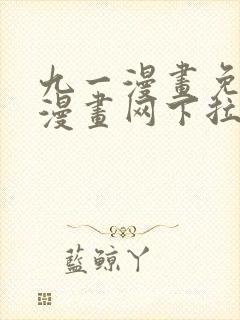 九一漫畫免
漫畫网下拉
藍鲸丫